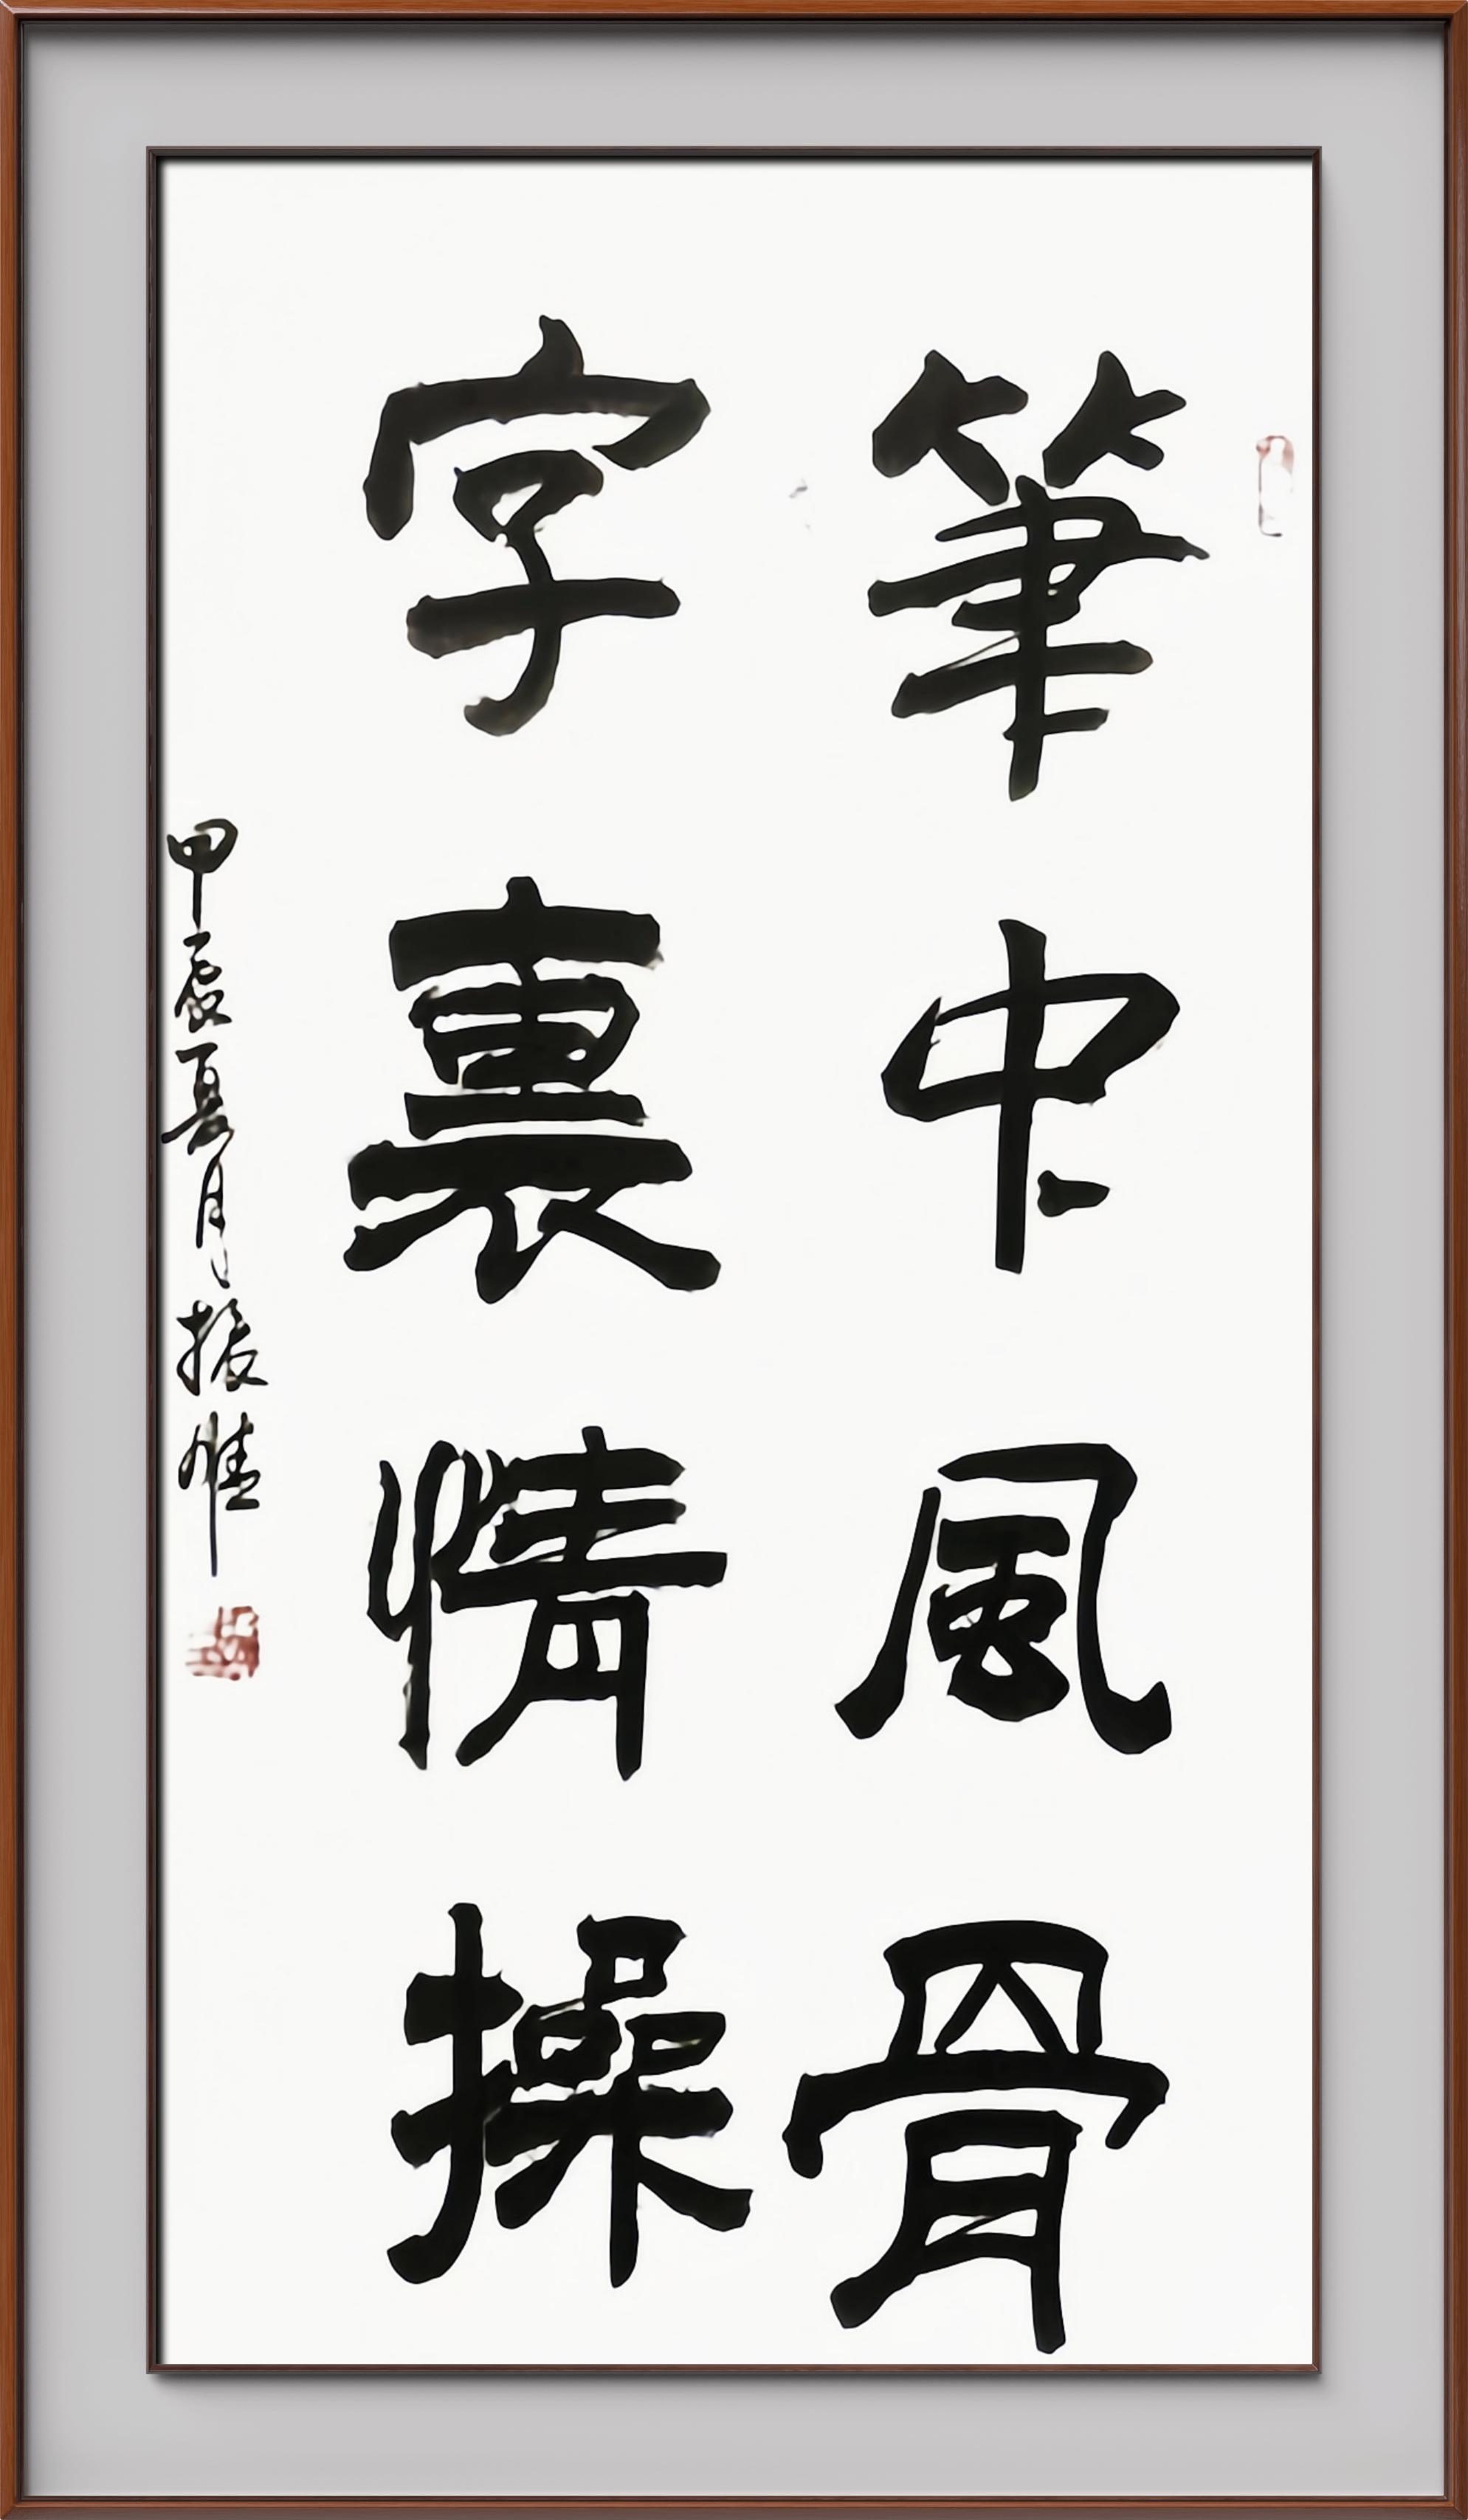 筆中風骨
字裏情操
甲辰夏月振惟